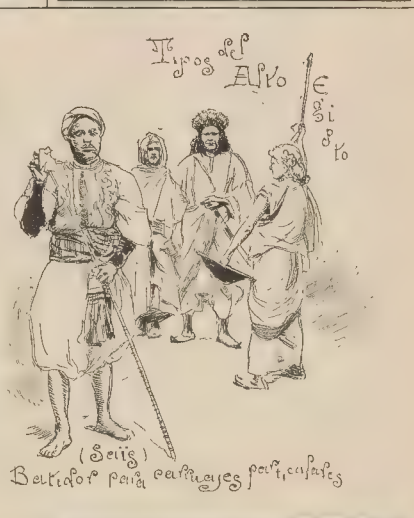 Tipos del
Alto Egipto
(Saïs)
Batidor para carruages particulares